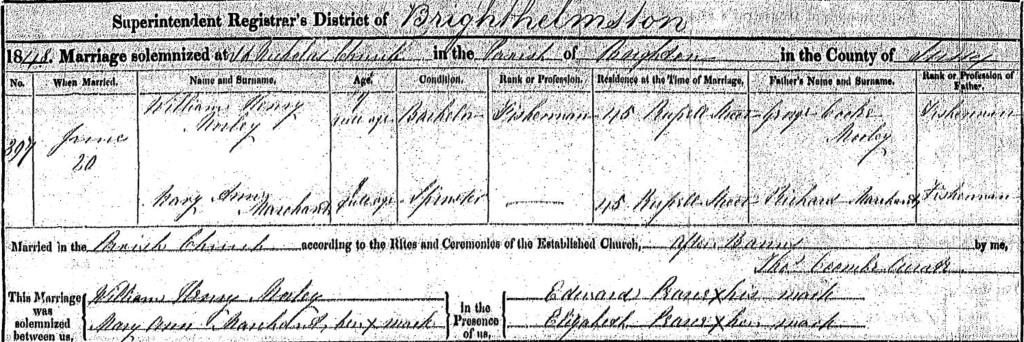 Superintendent Registrar's District of Brighthelmston
1848. Marriage solemnized at St Nicholas Church in the Parish of Brighton in the County of Sussex
No. When Married. Name and Surname. Age. Condition. Rank or Profession. Residence at the Time of Marriage. Father's Name and Surname. Rank or Profession of Father.
397 June 20 William Henry Morley Full age Bachelor Fisherman 45 Russell Street Cooke Morley Fisherman
Mary Ann Marchant Full age Spinster 45 Russell Street Richard Marchant Fisherman
Married in the Parish Church according to the Rites and Ceremonies of the Established Church, After Banns by me,
Thos Coombe
This Marriage was solemnized between us, William Henry Morley In the Presence of us, Edward x his mark
Mary Ann Marchant, her x mark Elizabeth x her mark